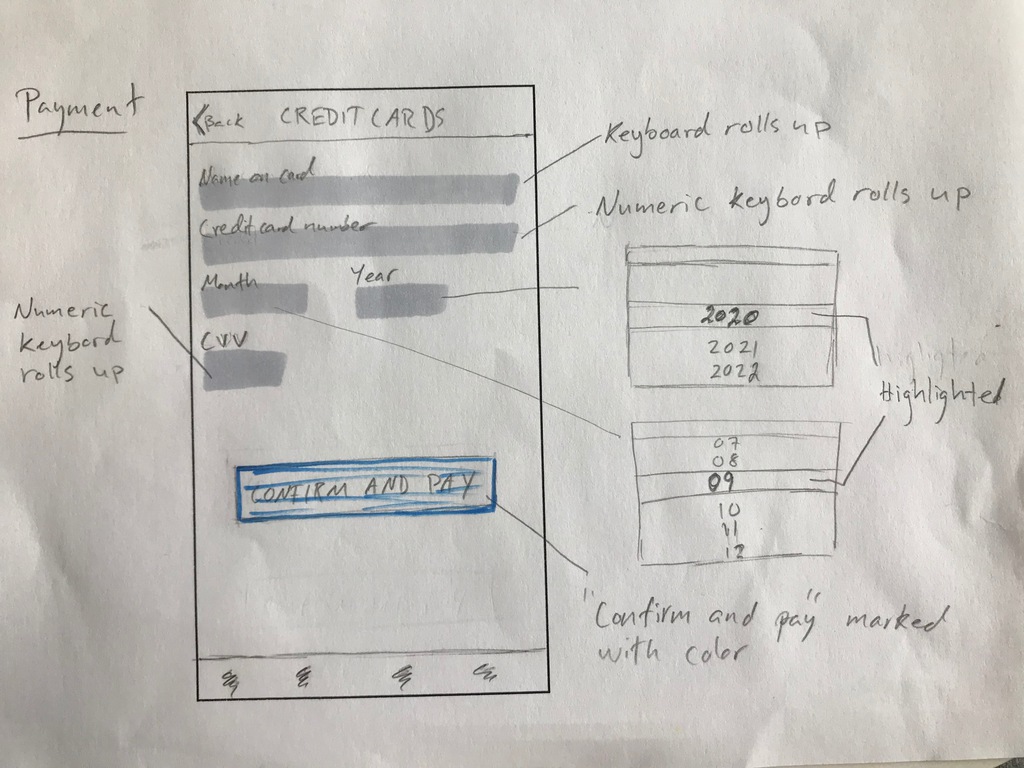 Payment
Back
CREDIT CARDS
Name on card
Credit card number
Month
Year
CVV
CONFIRM AND PAY
Keyboard rolls up
Numeric keybord rolls up
Numeric
keybord
rolls up
2020
2021
2022
Highlighted
07
08
09
10
11
12
"Confirm and pay" marked
with color